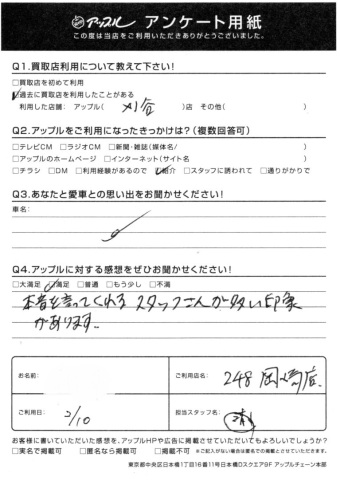 アップル アンケート用紙
この度は当店をご利用いただきありがとうございました。
Q1.買取店利用について教えて下さい!
□買取店を初めて利用
☑過去に買取店を利用したことがある
利用した店舗: アップル( 刈谷 )店 その他( )
Q2.アップルをご利用になったきっかけは?(複数回答可)
□テレビCM □ラジオCM □新聞・雑誌(媒体名/ )
□アップルのホームページ □インターネット(サイト名 )
□チラシ □DM □利用経験があるので ☑紹介 □スタッフに誘われて □通りがかりで
Q3.あなたと愛車との思い出をお聞かせください!
車名:
Q4.アップルに対する感想をぜひお聞かせください!
□大満足 ☑満足 □普通 □もう少し □不満
本音を言ってくれる スタッフさんが多い印象
があります..
お名前: ご利用店名: 248 岡崎店.
ご利用日: 2/10 担当スタッフ名:
お客様に書いていただいた感想を、アップルHPや広告に掲載させていただいてもよろしいでしょうか?
□実名で掲載可 □匿名なら掲載可 □掲載不可 ※ご記入がない場合は匿名での掲載とさせていただきます。
東京都中央区日本橋1丁目16番11号日本橋Dスクエア9F アップルチェーン本部